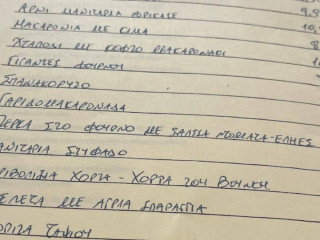 ΑΡΝΙ ΜΑΝΙΤΑΡΙΑ ΦΡΙΚΑΣΕ 9,9
ΜΑΚΑΡΟΝΙΑ ΜΕ ΚΙΜΑ 10,
ΧΤΑΠΟΔΙ ΜΕ ΚΟΦΤΟ ΜΑΚΑΡΟΝΑΚΙ 8
ΓΙΓΑΝΤΕΣ ΦΟΥΡΝΟΥ
ΣΠΑΝΑΚΟΡΥΖΟ
ΓΑΡΙΔΟΜΑΚΑΡΟΝΑΔΑ
ΠΕΡΚΑ ΣΤΟ ΦΟΥΡΝΟ ΜΕ ΣΑΛΤΣΑ ΝΤΟΜΑΤΑ-ΕΛΙΕΣ
ΑΝΙΤΑΡΙΑ ΣΤΙΦΑΔΟ
ΧΟΡΤΑ - ΧΟΡΤΑ ΤΟΥ ΒΟΥΝΟΥ
ΜΕ ΑΓΡΙΑ ΣΠΑΡΑΓΓΙΑ